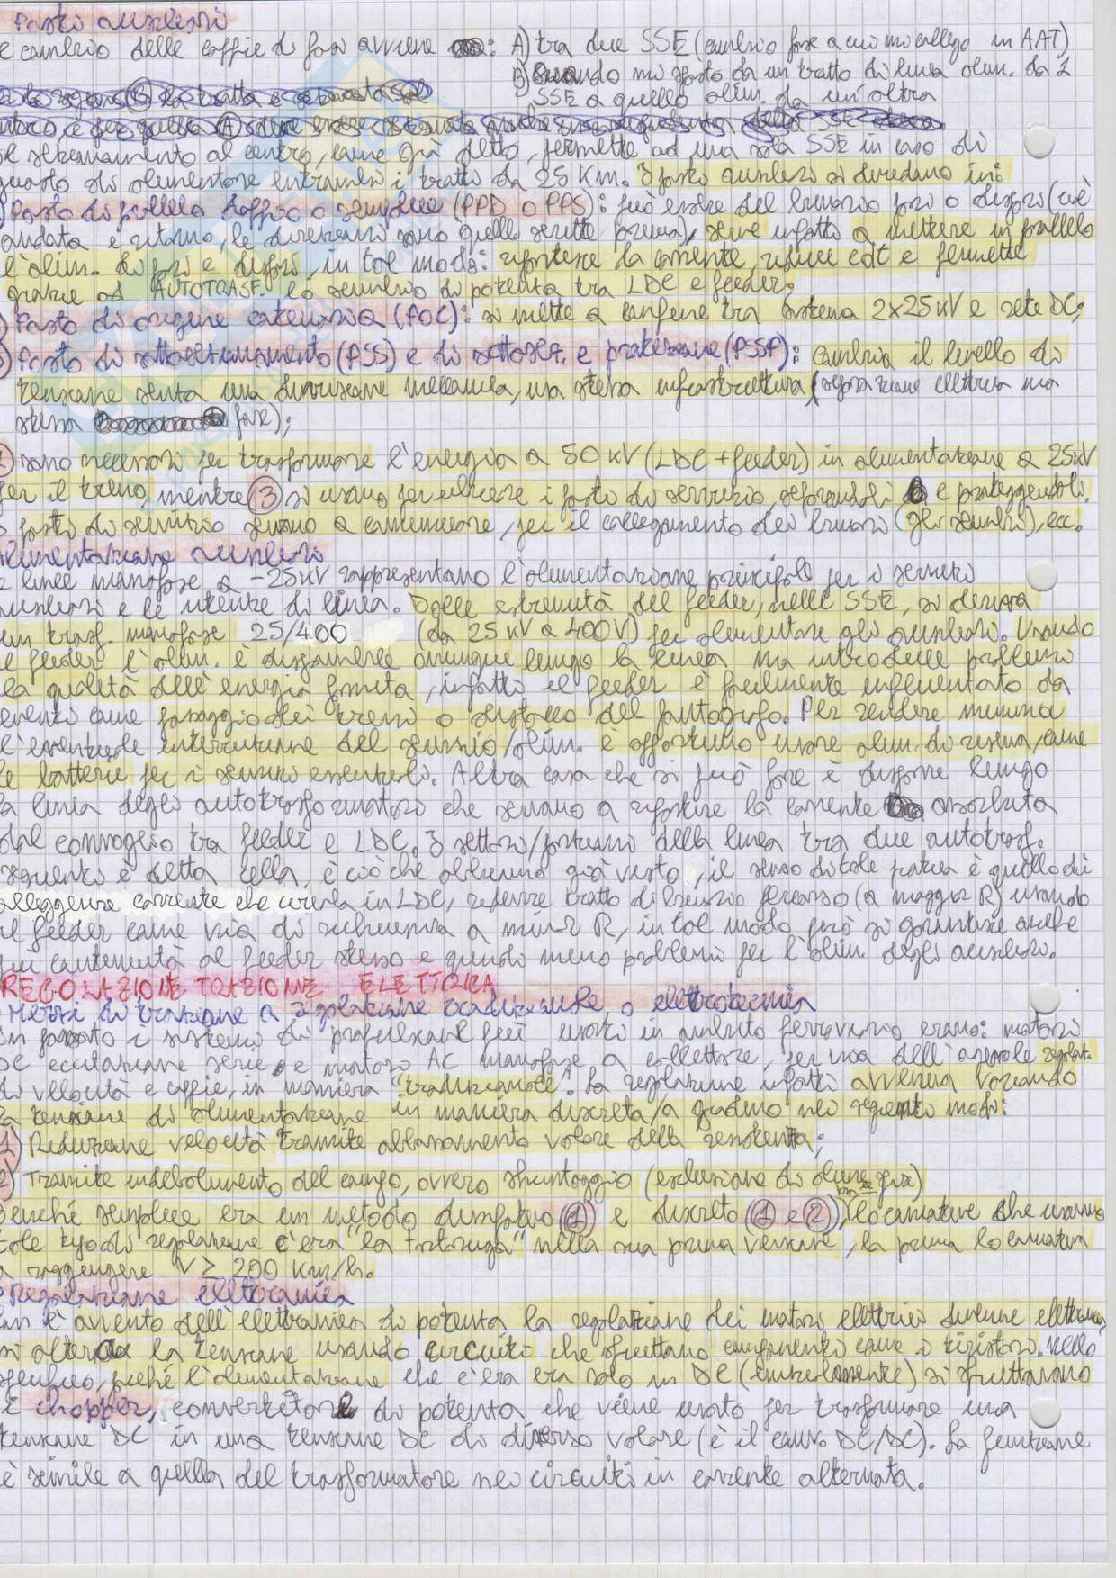 Posti ausiliari
cambio delle coppie di fasi avviene : A) tra due SSE (cambio fase a cui mi collego in AAT)
B) Quando mi sposto da un tratto di linea alim. da 1
SSE a quello alim. da un'altra
sezionamento al centro, come già detto, permette ad una sola SSE in caso di
guasto di alimentare entrambi i tratti da 25 Km. I posti ausiliari si dividono in:
Posto di parallelo doppio o semplice (PPD o PPS): può essere del binario pari o dispari (cioè
andata e ritorno, le direzioni sono quelle scritte prima), serve infatti a mettere in parallelo
l'alim. di pari e dispari, in tal modo: ripartisce la corrente, riduce cdt e permette
grazie ad AUTOTRASF. lo scambio di potenza tra LDC e feeder;
Posto di origine catenaria (POC): si mette a confine tra sistema 2x25 kV e rete DC;
Posto di (PSS) e di e protezione (PSP): cambia il livello di
tensione senza una divisione meccanica, ma stessa infrastruttura (separazione elettrica ma
stessa fase);
sono necessari per trasformare l'energia a 50 kV (LDC + feeder) in alimentazione a 25 kV
per il treno, mentre 3 si usano per i posti di servizio, separandoli e proteggendoli.
posti di servizio servono a comunicare, per il collegamento dei binari (gli scambi), ecc.
Alimentazione ausiliari
linee monofase a -25 kV rappresentano l'alimentazione principale per i servizi
ausiliari e le utenze di linea. Dalle estremità del feeder, nelle SSE, si deriva
un trasf. monofase 25/400 (da 25 kV a 400 V) per alimentare gli ausiliari. Usando
il feeder l'alim. è disponibile ovunque lungo la linea ma introduce problemi
la qualità dell'energia fornita, infatti il feeder è facilmente influenzato da
eventi come passaggio dei treni o distacco del pantografo. Per rendere minima
l'eventuale interruzione del servizio/alim. è opportuno usare alim. di riserva, come
le batterie per i servizi essenziali. Altra cosa che si può fare è disporre lungo
la linea degli autotrasformatori che servano a ripartire la corrente assorbita
dal convoglio tra feeder e LDC. I settori/porzioni della linea tra due autotrasf.
è detta cella, è ciò che abbiamo già visto, il senso di tale pratica è quello di
alleggerire corrente che circola in LDC, tratto di binario percorso (a maggior R) usando
il feeder come via di richiusura a minor R, in tal modo può si garantire anche
più continuità al feeder stesso e quindi meno problemi per l'alim. degli ausiliari.
REGOLAZIONE TRAZIONE ELETTRICA
Mezzi di trazione a regolazione tradizionale, o elettrotecnica
in passato i sistemi di propulsione più usati in ambito ferroviario erano: motori
DC eccitazione serie e motori AC monofase a collettore, per via dell'agevole regolaz.
di velocità e coppie, in maniera "tradizionale". La regolazione infatti avveniva variando
la tensione di alimentazione in maniera discreta/a gradino nei seguenti modi:
1) Reduzione velocità tramite abbassamento valore della resistenza;
2) Tramite indebolimento del campo, ovvero shuntaggio (esclusione di alcune spire)
semplice era un metodo dissipativo (1) e discreto (1 e 2), locomotive che usavano
tale tipo di regolazione c'era "la tartaruga" nella sua prima versione, la prima locomotiva
a raggiungere V ≥ 200 Km/h.
Regolazione elettronica
con l'avvento dell'elettronica di potenza la regolazione dei motori elettrici divenne elettronica,
si alterava la tensione usando circuiti che sfruttano componenti come i tiristori. Nello
specifico, poiché l'alimentazione che c'era era solo in DC (inizialmente) si sfruttavano
i chopper, convertitore di potenza che viene usato per trasformare una
tensione DC in una tensione DC di diverso valore (è il conv. DC/DC). La funzione
è simile a quella del trasformatore nei circuiti in corrente alternata.